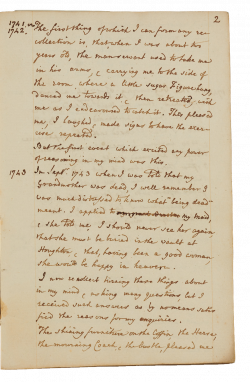 2
1741, or The first thing of which I can form any re-
1742. collection is, that when I was about two
years old, the manservant used to take me
in his arms, & carrying me to the side of
the room where a little sugar Figure hung,
danced me towards it &, then retreated, with
me as I endeavored to catch it. This pleased
me, I laughed, made signs to have the exer-
cise repeated.
But the first event which excited any power
of reasoning in my mind was this.
1743 In Sept. 1743 when I was told that my
Grandmother was dead, I well remember I
was much disturbed to know what being dead
meant. I applied to my maid,
& she told me, I should never see her again
that she must be buried in the vault at
Houghton, & that, having been a good woman
she would be happy in heaven.
I was restless turning these things about
in my mind, & asking many questions but I
received such answers as by no means satis
fied the reasons for my enquiries.
The shining furniture on the Coffin, the Hearse,
the mourning Coach, the bustle, pleased me